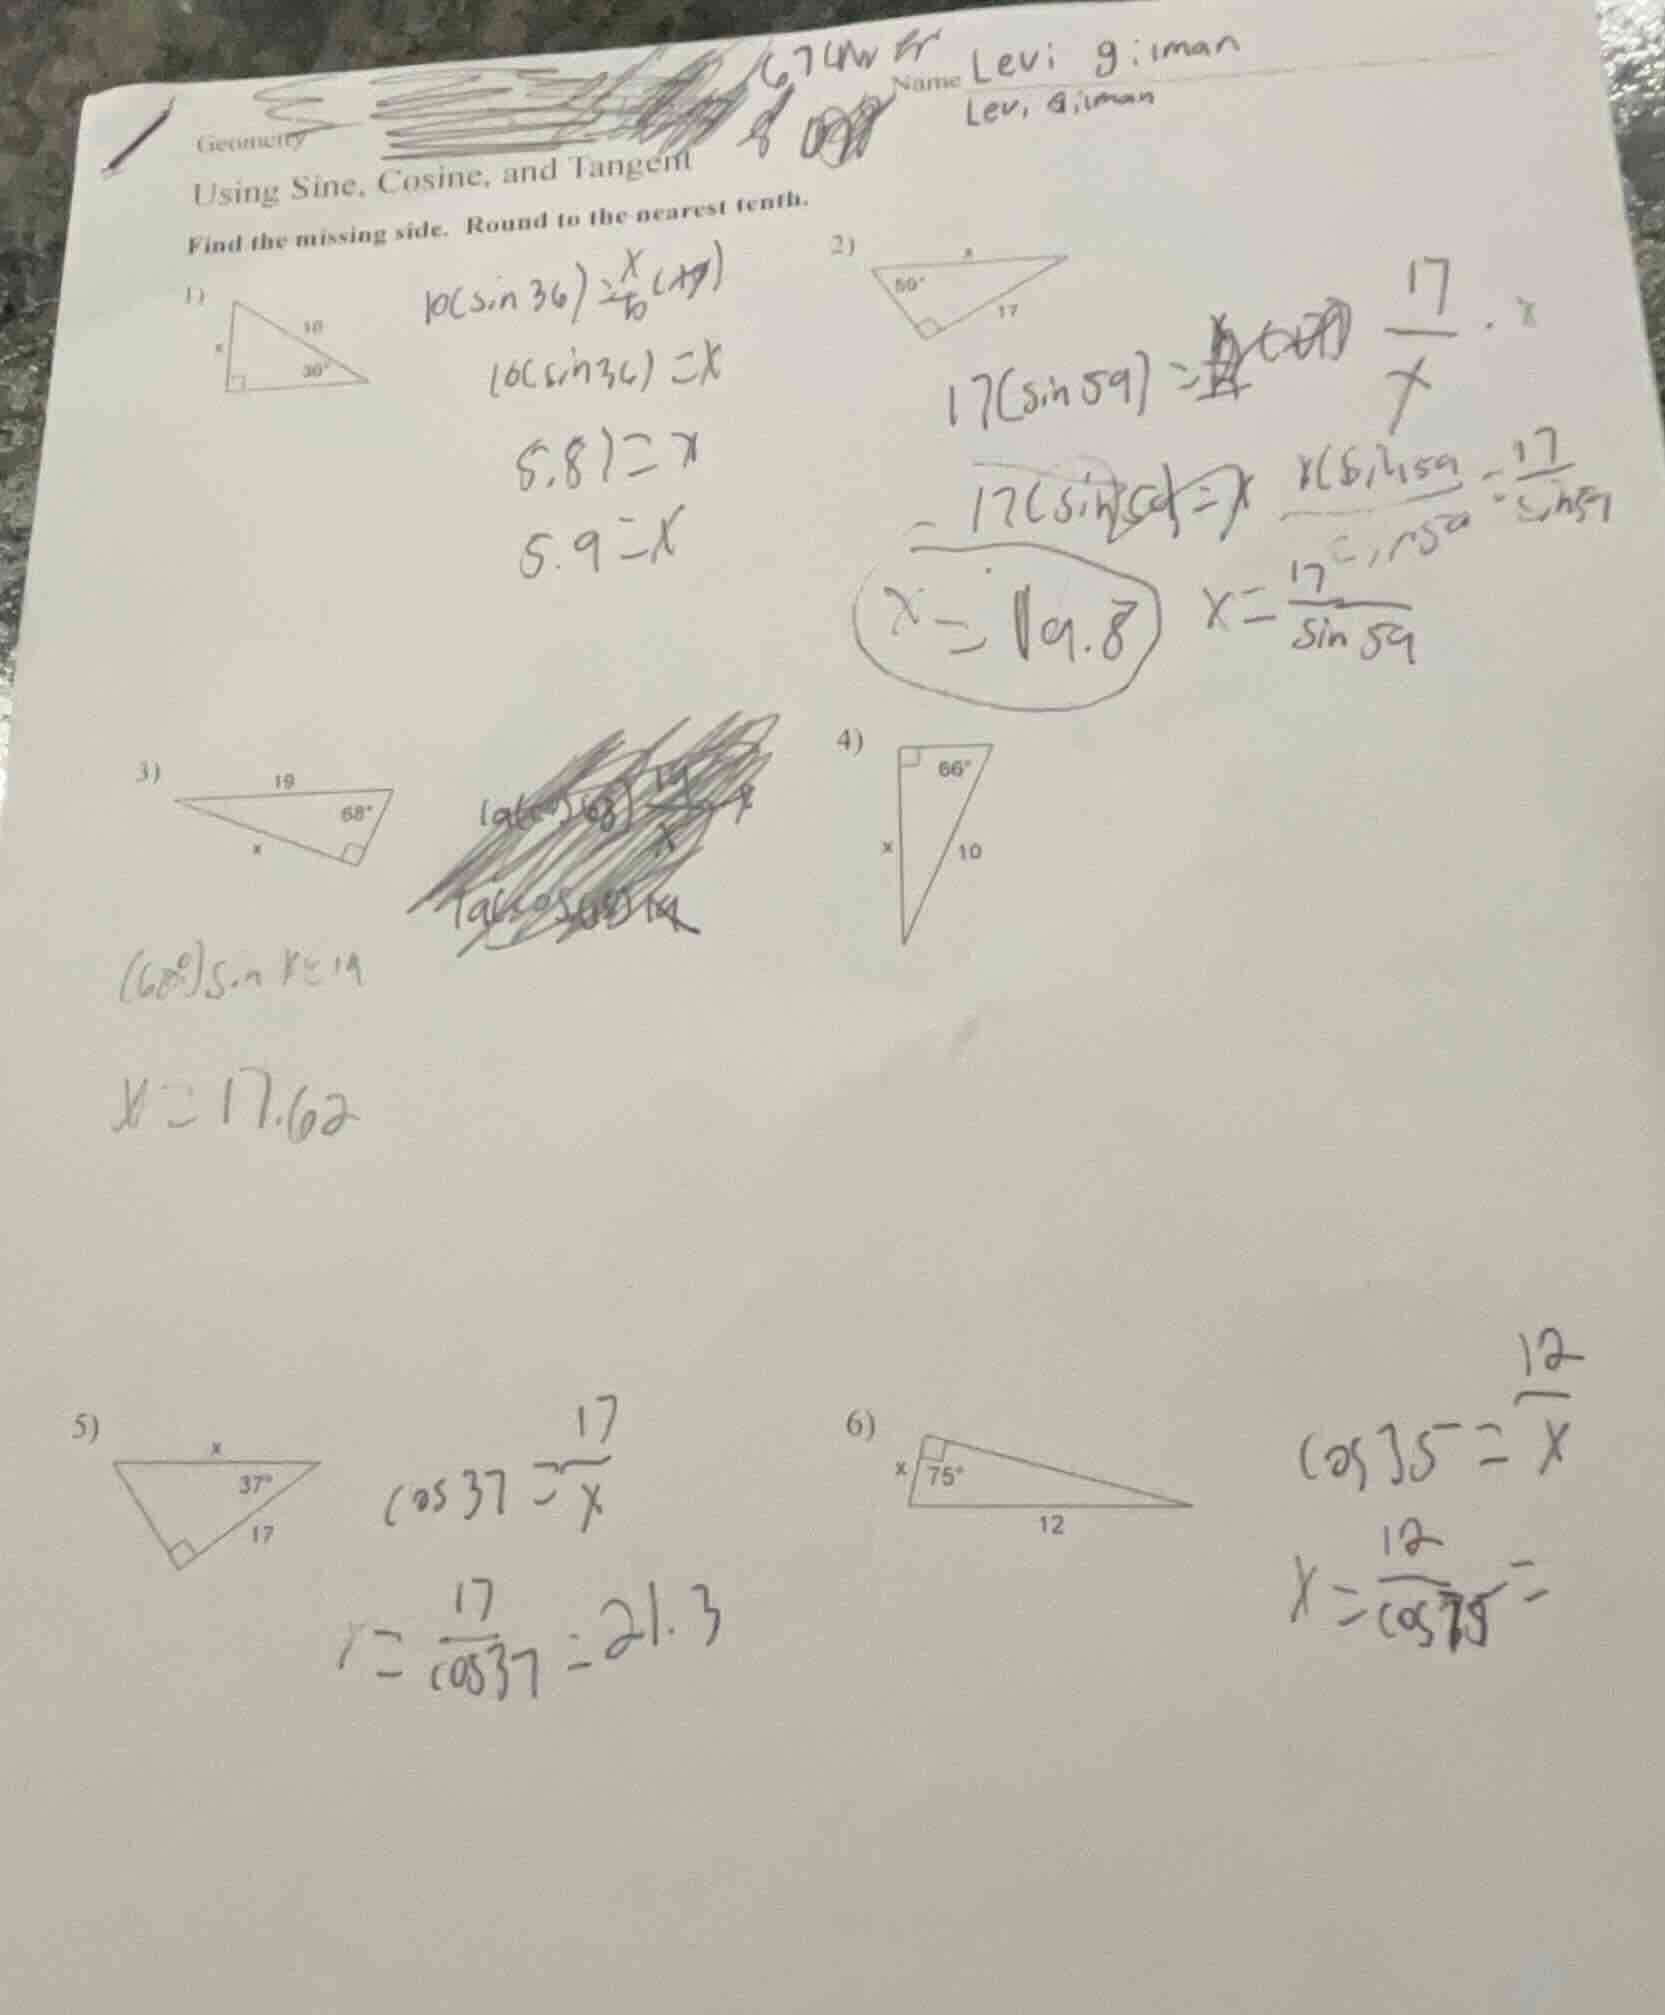 Name Levi gilman
Levi Gilman
Geometry
Using Sine, Cosine, and Tangent
Find the missing side. Round to the nearest tenth.
1)
10
x
36°
10(sin 36) = x/10
10(sin36) = x
5.87 = x
5.9 = x
2)
x
59°
17
17(sin 59) = 17/x · x
17(sin59) = x
x(sin59/sin59 = 17/sin59
x = 17/sin 59
x = 19.8
3)
19
68°
x
(68°)sin x = 19
x = 17.62
4)
66°
x
10
5)
x
37°
17
cos 37 = 17/x
x = 17/cos37 = 21.3
6)
x
75°
12
cos 75 = 12/x
x = 12/cos75 =